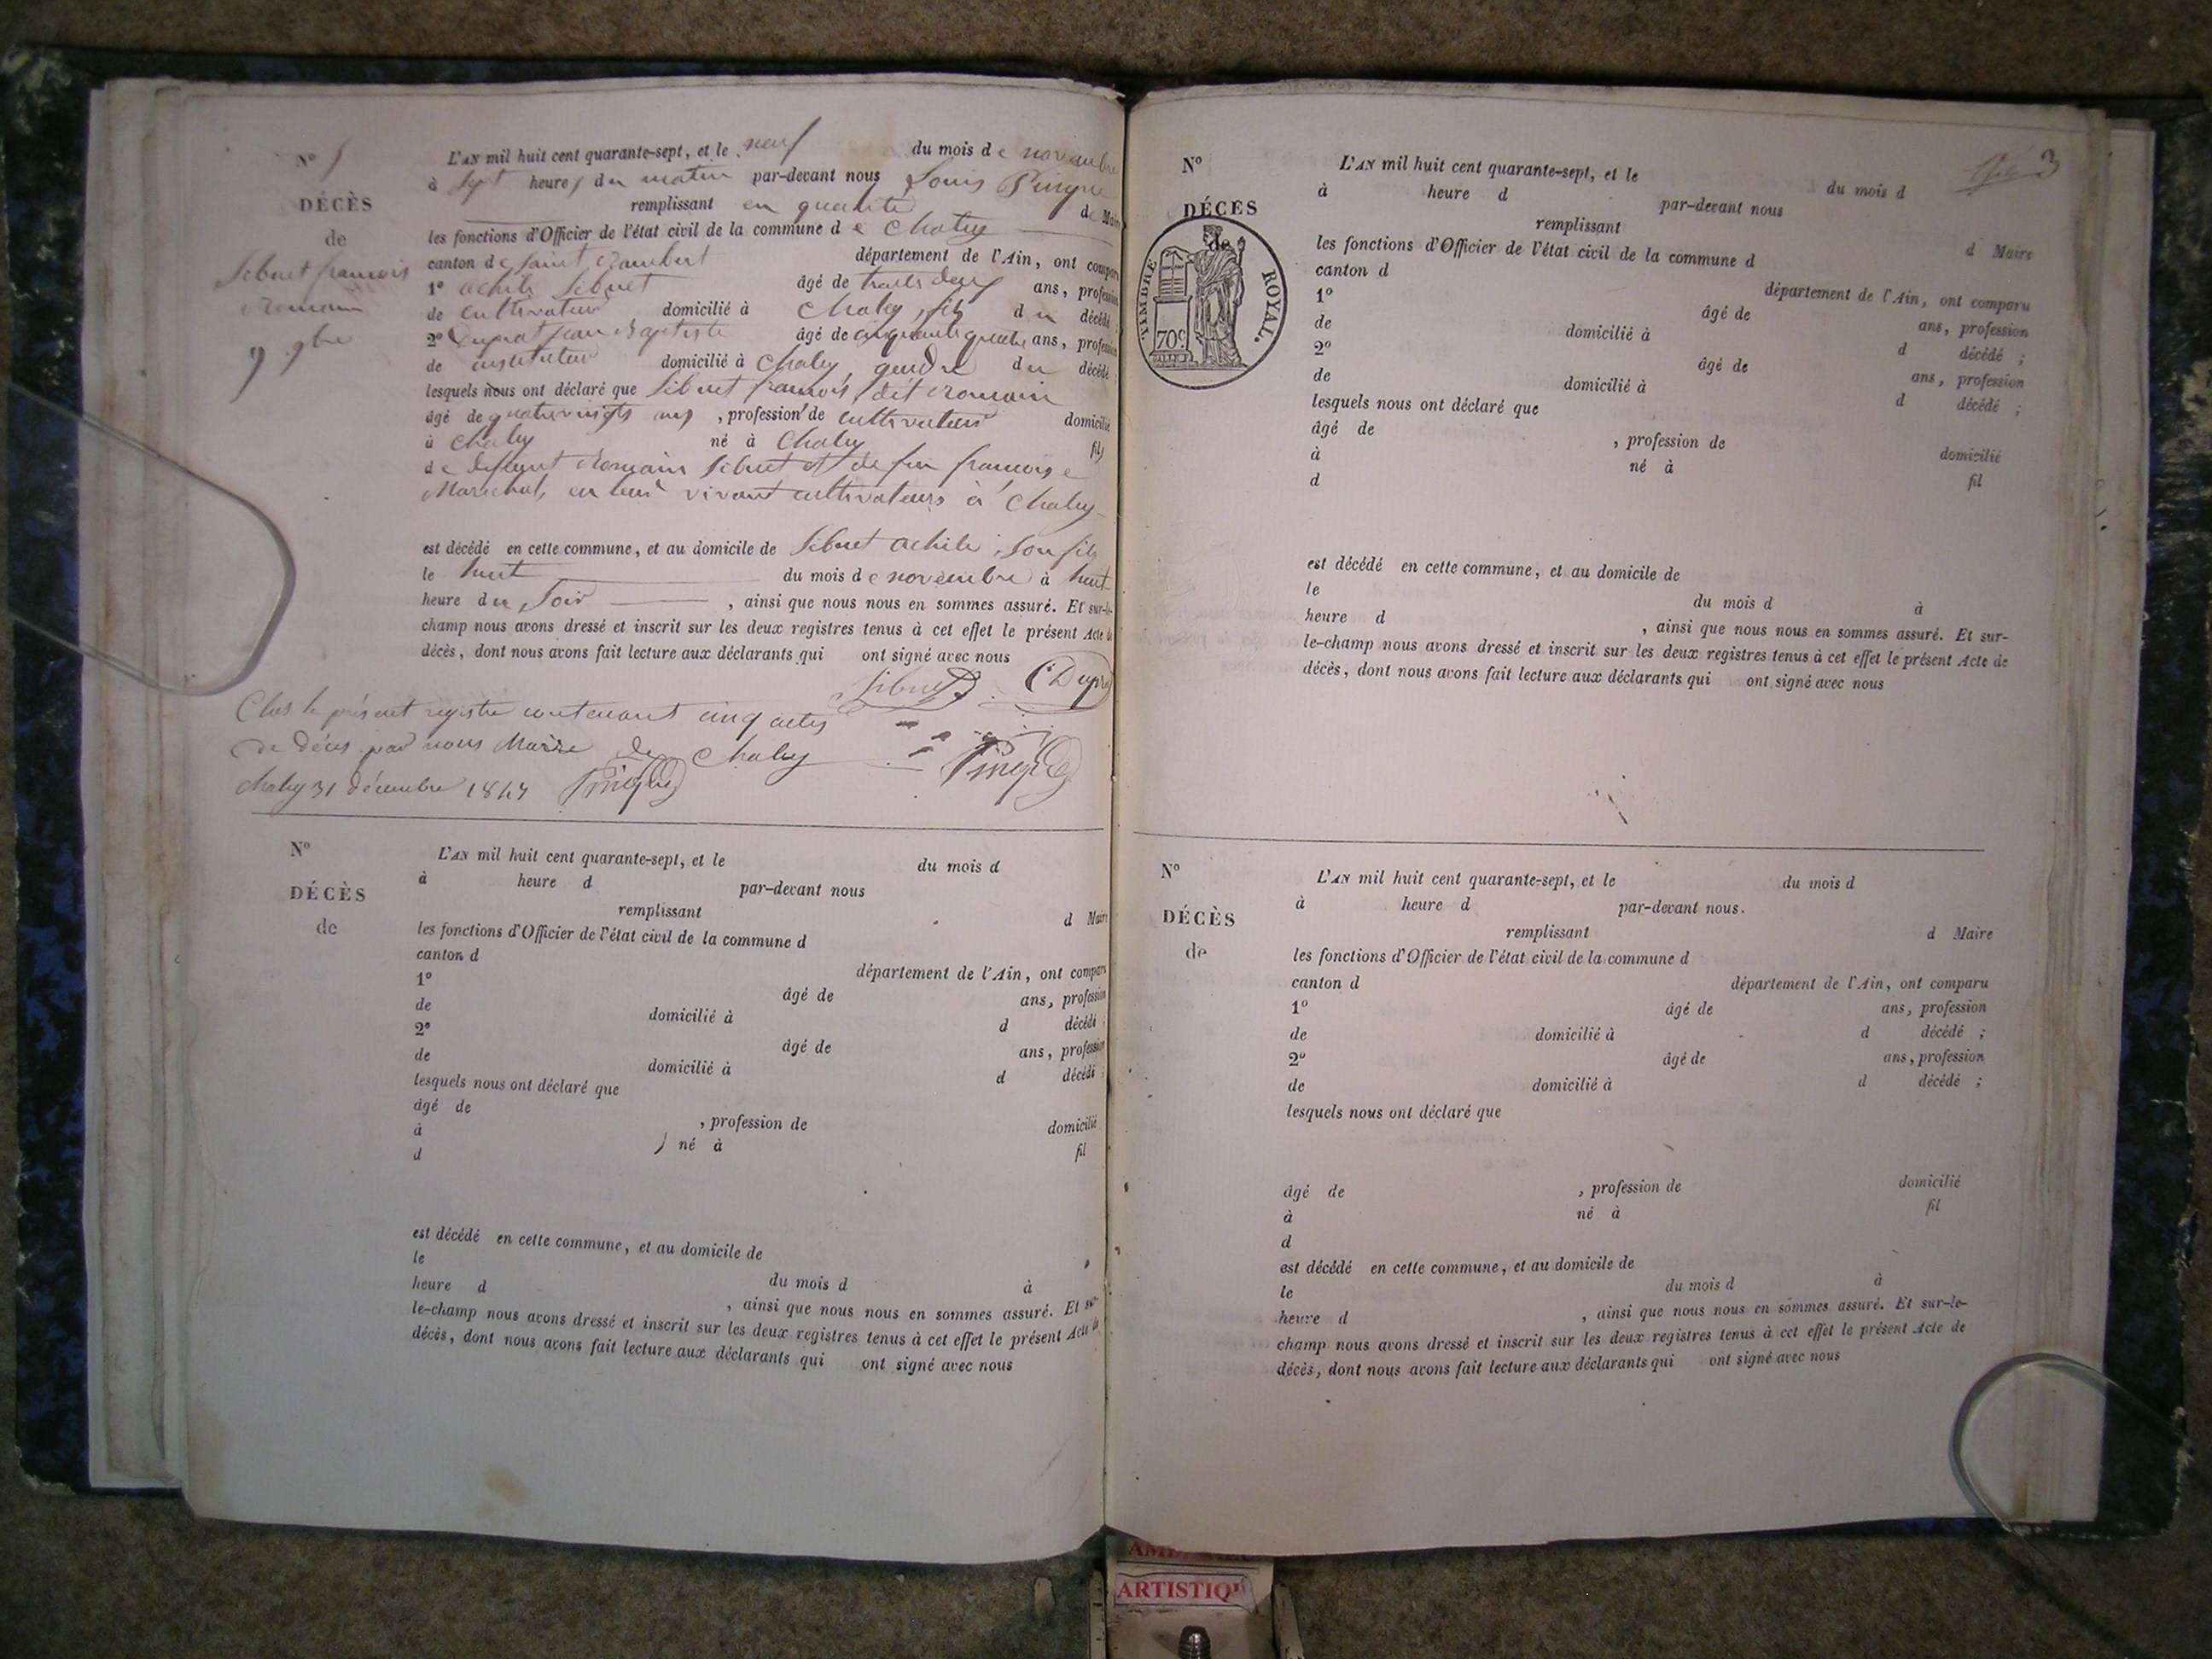 N° 5
DÉCÈS
de
Sibuet françois
romain
9 9bre
L'AN mil huit cent quarante-sept, et le neuf du mois de novembre
à sept heures du matin par-devant nous Louis Pingue
remplissant en qualité de Maire
les fonctions d'Officier de l'état civil de la commune de Chaley
canton de Saint Rambert département de l'Ain, ont comparu
1° achile Sibuet âgé de trente deux ans, profession
de cultivateur domicilié à Chaley, fils du décédé ;
2° Dupra Jean Baptiste âgé de cinquante quatre ans, profession
de instituteur domicilié à Chaley, gendre du décédé ;
lesquels nous ont déclaré que Sibuet françois, dit romain
âgé de quatrevingts ans, profession de cultivateur domicilié
à Chaley né à Chaley fils
de deffunt Romain Sibuet et de feu françoise
Marechal, en leur vivant cultivateurs à Chaley
est décédé en cette commune, et au domicile de Sibuet achile, son fils
le huit du mois de novembre à huit
heure du Soir, ainsi que nous nous en sommes assuré. Et sur-le-
champ nous avons dressé et inscrit sur les deux registres tenus à cet effet le présent Acte de
décès, dont nous avons fait lecture aux déclarants qui ont signé avec nous
Sibuet Dupra
Clos le présent registre contenant cinq actes
de décès par nous Maire de Chaley
Chaley 31 décembre 1847 Pingue Pingue
N°
DÉCÈS
de
L'AN mil huit cent quarante-sept, et le du mois d
à heure d par-devant nous
remplissant d Maire
les fonctions d'Officier de l'état civil de la commune d
canton d département de l'Ain, ont comparu
1° âgé de ans, profession
de domicilié à d décédé ;
2° âgé de ans, profession
de domicilié à d décédé ;
lesquels nous ont déclaré que
âgé de , profession de domicilié
à né à fil
d
est décédé en cette commune, et au domicile de
le du mois d à
heure d , ainsi que nous nous en sommes assuré. Et sur-
le-champ nous avons dressé et inscrit sur les deux registres tenus à cet effet le présent Acte de
décès, dont nous avons fait lecture aux déclarants qui ont signé avec nous
3
N°
DÉCÈS
de
TIMBRE ROYAL.
70c
L'AN mil huit cent quarante-sept, et le du mois d
à heure d par-devant nous
remplissant d Maire
les fonctions d'Officier de l'état civil de la commune d
canton d département de l'Ain, ont comparu
1° âgé de ans, profession
de domicilié à d décédé ;
2° âgé de ans, profession
de domicilié à d décédé ;
lesquels nous ont déclaré que
âgé de , profession de domicilié
à né à fil
d
est décédé en cette commune, et au domicile de
le du mois d à
heure d , ainsi que nous nous en sommes assuré. Et sur-
le-champ nous avons dressé et inscrit sur les deux registres tenus à cet effet le présent Acte de
décès, dont nous avons fait lecture aux déclarants qui ont signé avec nous
N°
DÉCÈS
de
L'AN mil huit cent quarante-sept, et le du mois d
à heure d par-devant nous.
remplissant d Maire
les fonctions d'Officier de l'état civil de la commune d
canton d département de l'Ain, ont comparu
1° âgé de ans, profession
de domicilié à d décédé ;
2° âgé de ans, profession
de domicilié à d décédé ;
lesquels nous ont déclaré que
âgé de , profession de domicilié
à né à fil
d
est décédé en cette commune, et au domicile de
le du mois d à
heure d , ainsi que nous nous en sommes assuré. Et sur-le-
champ nous avons dressé et inscrit sur les deux registres tenus à cet effet le présent Acte de
décès, dont nous avons fait lecture aux déclarants qui ont signé avec nous
ARTISTIQU